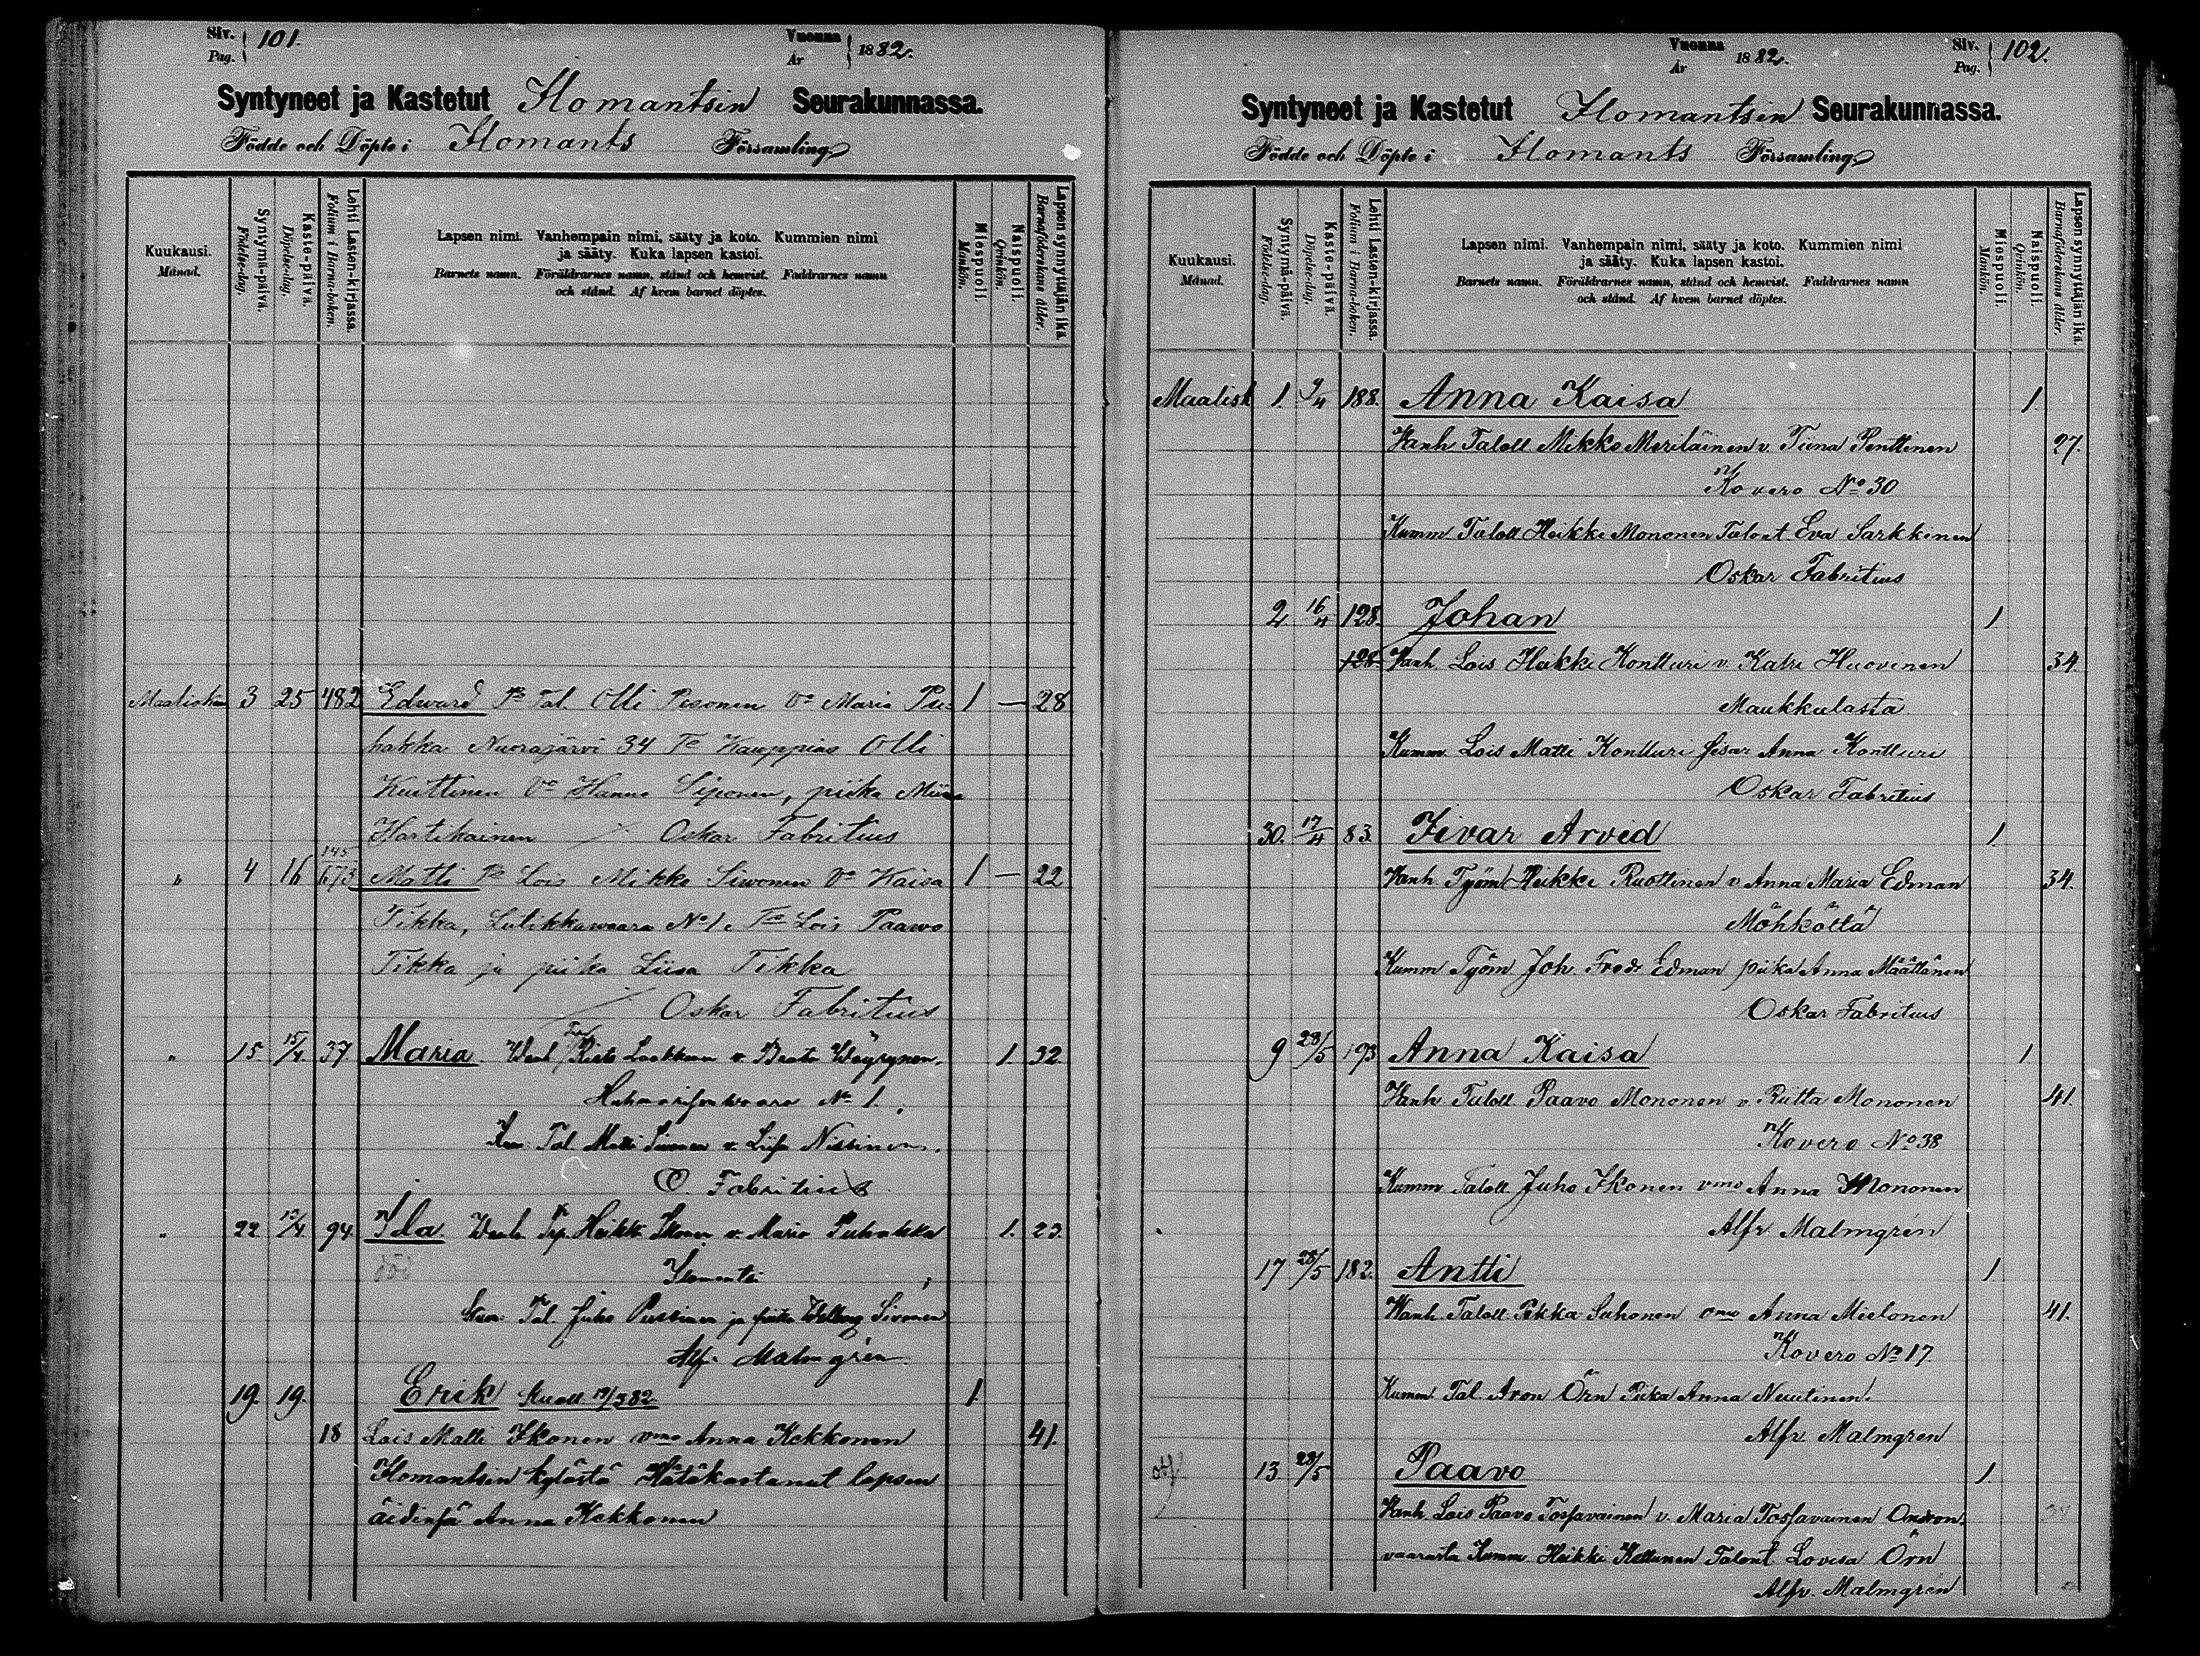 Siv. Pag. 101.
Vuonna År 1882.
Syntyneet ja Kastetut Ilomantsin Seurakunnassa.
Födde och Döpte i Ilomants Församling
Kuukausi. Månad.
Syntymä-päivä. Födelse-dag.
Kaste-päivä. Döpelse-dag.
Lehti Lasten-kirjassa. Folium i Barna-boken.
Lapsen nimi. Vanhempain nimi, sääty ja koto. Kummien nimi
ja sääty. Kuka lapsen kastoi.
Barnets namn. Föräldrarnes namn, stånd och hemvist. Faddrarnes namn
och stånd. Af hvem barnet döptes.
Miespuoli. Mankön.
Naispuoli. Qvinkön.
Lapsen synnyttäjän ikä. Barnaföderskans ålder.
Maalisku 3 25 482 Edward Pr Tal. Olli Pesonen Vo Maria Pu- 1 — 28
hakka Nuorajärvi 34 Te Kauppias Olli
Kuittinen Vo Hanna Siponen, piika Miina
Hartikainen Oskar Fabritius
" 4 16 145 673 Matti Pr Lois Mikko Siwonen Vo Kaisa 1 — 22
Tikka, Lutikkawaara No 1. Te Lois Paawo
Tikka ja piika Liisa Tikka
Oskar Fabritius
" 15. 15/4. 37 Maria. Wanh Tal Risto Laakkonen v. Beata Wäyrynen. 1. 32.
No 1.
Kum. Tal Matti Siwonen v. Liisa Nissinen.
O. Fabritius
" 22 10/4. 94. Ida Wanh. Heikki Ikonen v. Maria Puhakka 1. 23.
död Ilomantsi
Kum. Tal. Juho Pussinen ja piika Walborg Sivonen
Alfr. Malmgrén
19. 19. Erik Kuoll 19/3 82 1.
18 Lois Matti Ikonen vmo Anna Kekkonen 41.
Ilomantsin kylästä Hätäkastanut lapsen
äidinsä Anna Kekkonen
Vuonna År 1882.
Siv. Pag. 102.
Syntyneet ja Kastetut Ilomantsin Seurakunnassa.
Födde och Döpte i Ilomants Församling
Kuukausi. Månad.
Syntymä-päivä. Födelse-dag.
Kaste-päivä. Döpelse-dag.
Lehti Lasten-kirjassa. Folium i Barna-boken.
Lapsen nimi. Vanhempain nimi, sääty ja koto. Kummien nimi
ja sääty. Kuka lapsen kastoi.
Barnets namn. Föräldrarnes namn, stånd och hemvist. Faddrarnes namn
och stånd. Af hvem barnet döptes.
Miespuoli. Mankön.
Naispuoli. Qvinkön.
Lapsen synnyttäjän ikä. Barnaföderskans ålder.
Maalisk 1. 9/4 188. Anna Kaisa 1.
Wanh Taloll Mikko Meriläinen v. Tiina Penttinen 27.
Kovero No 30
Kumm Taloll Heikki Mononen Talont Eva Sarkkinen
Oskar Fabritius
2 16/4 128. Johan 1
128 Wanh. Lois Heikki Kontturi v. Katri Huovinen 34.
Maukkulasta
Kumm. Lois Matti Kontturi sisar Anna Kontturi
Oskar Fabritius
30. 17/4 83. Iivar Arvid 1.
Wanh. Työm Heikki Ruottinen v Anna Maria Edman 34.
Möhköltä
Kumm Työm Joh. Fredr Edman piika Anna Määttänen
Oskar Fabritius
9 28/5 193 Anna Kaisa 1
Wanh Taloll. Paavo Mononen v. Riitta Mononen 41.
Kovero No 38
Kumm Taloll Juho Ikonen vmo Anna Mononen
Alfr. Malmgrén
17 28/5 182. Antti 1
Wanh. Taloll. Pekka Sahonen vmo Anna Mielonen 41.
Kovero No 17.
Kumm Tal. Aron Örn Piika Anna Nuutinen.
Alfr. Malmgren
13. 28/5 Paavo 1.
Wanh. Lois Paavo Tossavainen v. Maria Tossavainen Ontron-
vaarasta Kumm. Heikki Kettunen Talont Lovisa Örn
Alfr. Malmgrén